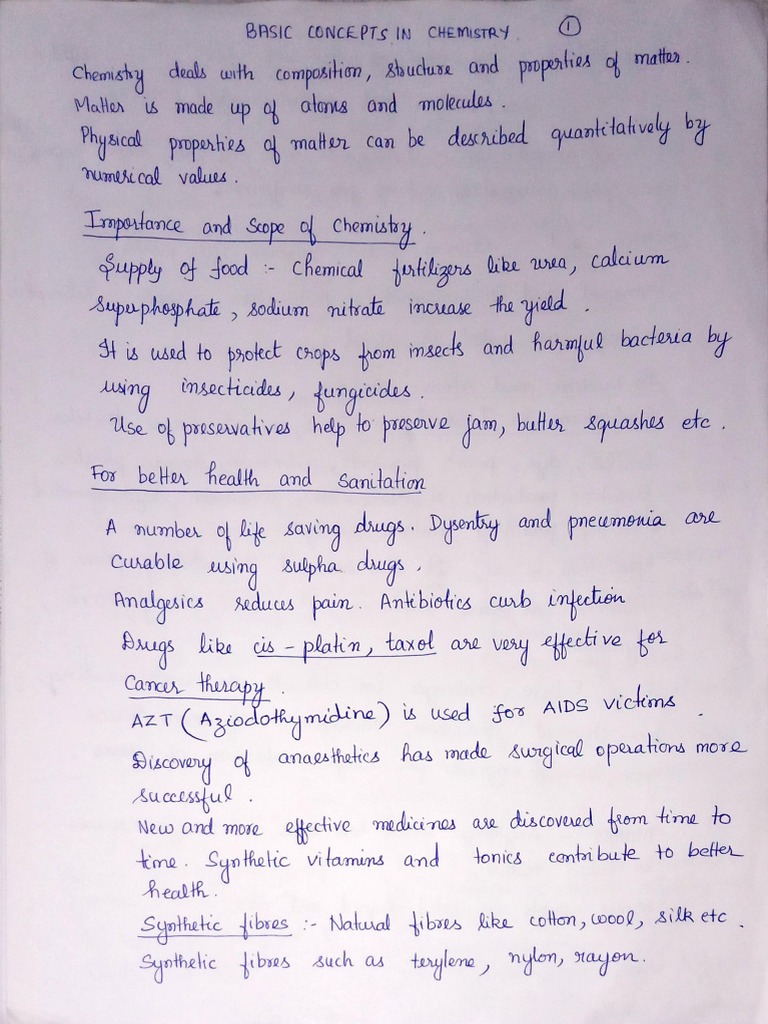 BASIC CONCEPTS IN CHEMISTRY. 1
Chemistry deals with composition, structure and properties of matter.
Matter is made up of atoms and molecules.
Physical properties of matter can be described quantitatively by
numerical values.
Importance and Scope of Chemistry.
Supply of food :- Chemical fertilizers like urea, calcium
superphosphate, sodium nitrate increase the yield.
It is used to protect crops from insects and harmful bacteria by
using insecticides, fungicides.
Use of preservatives help to preserve jam, butter squashes etc.
For better health and sanitation
A number of life saving drugs. Dysentry and pneumonia are
curable using sulpha drugs.
Analgesics reduces pain. Antibiotics curb infection
Drugs like cis-platin, taxol are very effective for
Cancer therapy.
AZT (Aziodothymidine) is used for AIDS victims.
Discovery of anaesthetics has made surgical operations more
successful.
New and more effective medicines are discovered from time to
time. Synthetic vitamins and tonics contribute to better
health.
Synthetic fibres :- Natural fibres like cotton, wool, silk etc.
Synthetic fibres such as terylene, nylon, rayon.